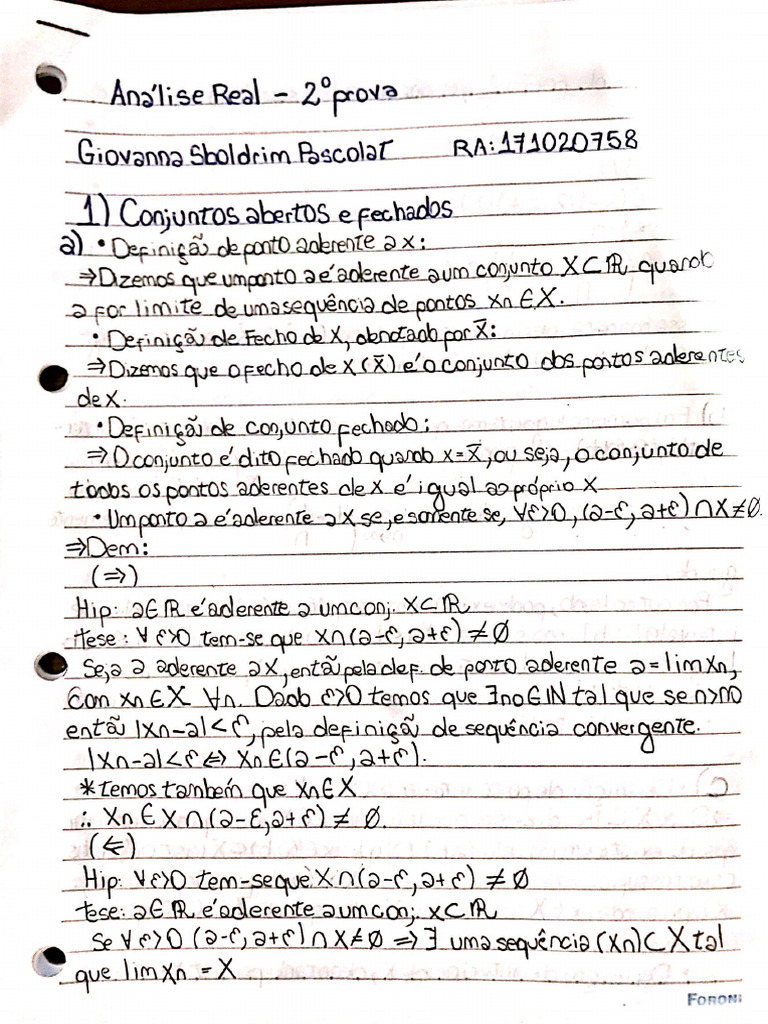 Análise Real - 2º prova
Giovanna Sboldrim Pascolat RA: 171020758
1) Conjuntos abertos e fechados
a) • Definição de ponto aderente a x:
⇒ Dizemos que um ponto a é aderente a um conjunto X⊂ℝ quando
a for limite de uma sequência de pontos xn∈X.
• Definição de Fecho de X, denotado por X̄:
⇒ Dizemos que o fecho de X (X̄) é o conjunto dos pontos aderentes
de X.
• Definição de conjunto fechado:
⇒ O conjunto é dito fechado quando x=X̄, ou seja, o conjunto de
todos os pontos aderentes de x é igual ao próprio X
• Um ponto a é aderente a X se, e somente se, ∀ε>0, (a-ε, a+ε)∩X≠∅.
⇒ Dem:
(⇒)
Hip: a∈ℝ é aderente a um conj. X⊂ℝ
tese: ∀ε>0 tem-se que X∩(a-ε, a+ε)≠∅
Seja a aderente a X, então pela def. de ponto aderente a=lim xn,
com xn∈X ∀n. Dado ε>0 temos que ∃no∈ℕ tal que se n>no
então |xn-a|<ε, pela definição de sequência convergente.
|xn-a|<ε ⇔ xn∈(a-ε, a+ε).
* temos também que xn∈X
∴ xn∈X∩(a-ε, a+ε)≠∅.
(⇐)
Hip: ∀ε>0 tem-se que X∩(a-ε, a+ε)≠∅
tese: a∈ℝ é aderente a um conj. X⊂ℝ
Se ∀ε>0 (a-ε, a+ε)∩X≠∅ ⇒ ∃ uma sequência (xn)⊂X tal
que lim xn = X
FORONI